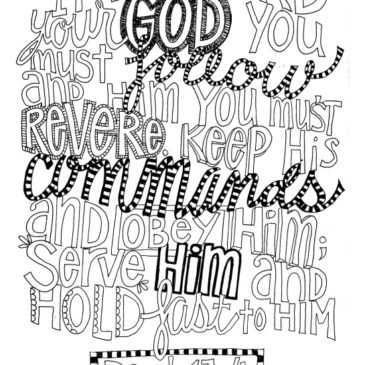 your GOD YOU
must follow
and Him YOU must
REVERE. Keep His
commands
and obey Him;
Serve Him and
HOLD fast to HIM